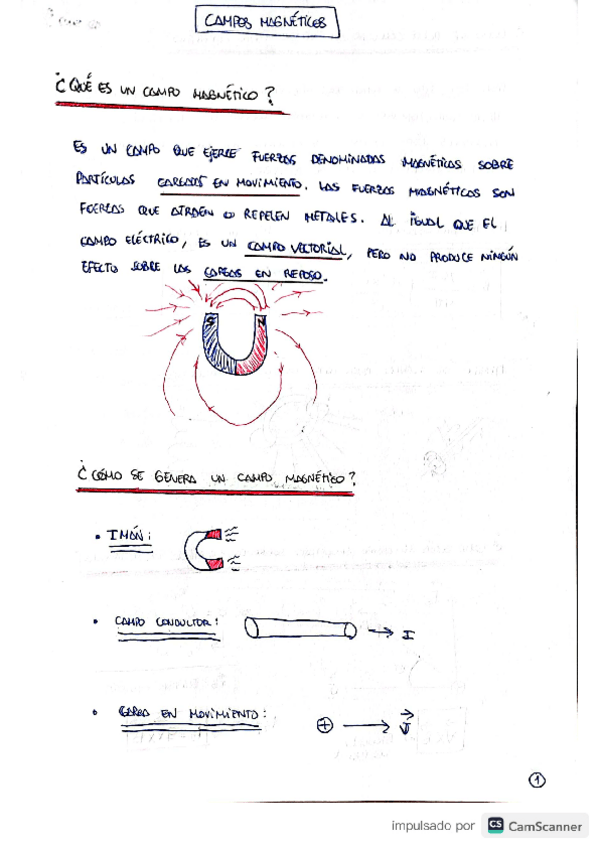 CAMPOS MAGNÉTICOS
¿QUÉ ES UN CAMPO MAGNÉTICO?
ES UN CAMPO QUE EJERCE FUERZAS DENOMINADAS MAGNÉTICAS SOBRE
PARTÍCULAS CARGADAS EN MOVIMIENTO. LAS FUERZAS MAGNÉTICAS SON
FUERZAS QUE ATRAEN O REPELEN METALES. AL IGUAL QUE EL
CAMPO ELÉCTRICO, ES UN CAMPO VECTORIAL, PERO NO PRODUCE NINGÚN
EFECTO SOBRE LAS CARGAS EN REPOSO.
S N
¿CÓMO SE GENERA UN CAMPO MAGNÉTICO?
• IMÁN:
• CAMPO CONDUCTOR: I
• CARGA EN MOVIMIENTO: +
1
impulsado por CS CamScanner